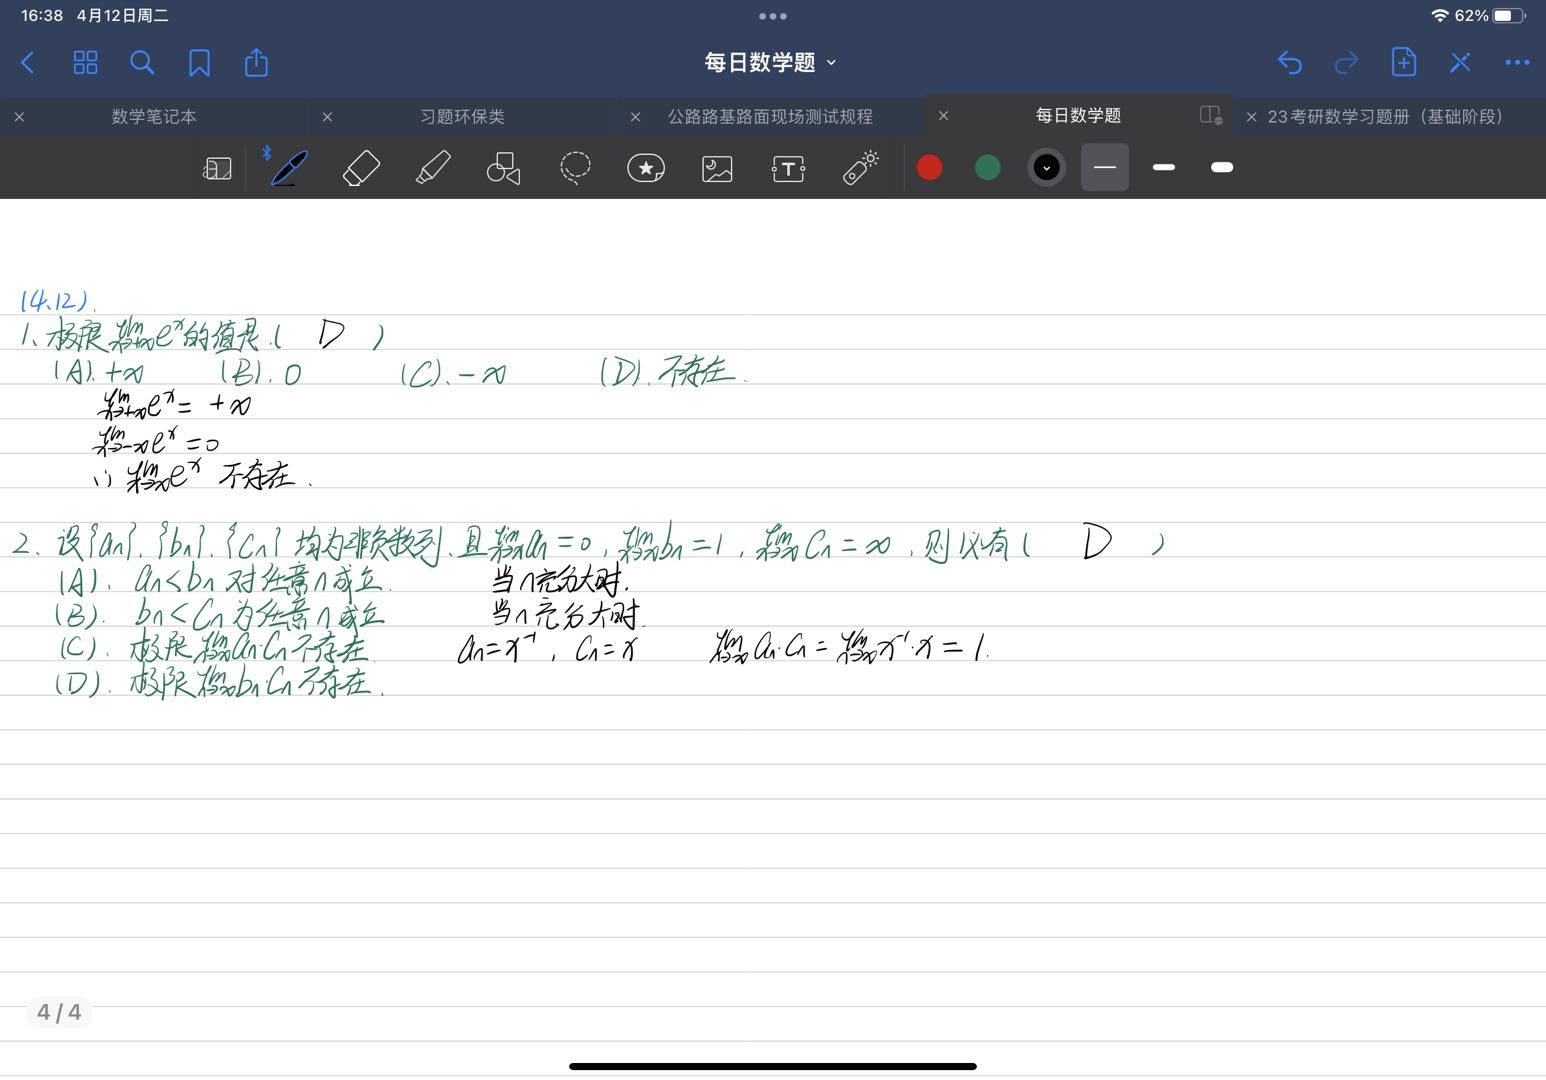 16:38 4月12日周二
62%
每日数学题
数学笔记本
习题环保类
公路路基路面现场测试规程
每日数学题
23考研数学习题册（基础阶段）
T
(4.12).
1、极限 lim x→∞ eˣ的值是( D )
(A). +∞ (B). 0 (C). -∞ (D). 不存在.
lim x→+∞ eˣ = +∞
lim x→-∞ eˣ = 0
∴ lim x→∞ eˣ 不存在.
2、设{an}、{bn}、{Cn}均为非负数列、且 lim n→∞ an = 0, lim n→∞ bn = 1, lim n→∞ Cn = ∞, 则必有( D )
(A). an<bn 对任意n成立. 当n充分大时.
(B). bn<Cn 为任意n成立 当n充分大时.
(C). 极限 lim n→∞ an·Cn 不存在. an=x⁻¹, Cn=x lim x→∞ an·Cn = lim x→∞ x⁻¹·x = 1.
(D). 极限 lim n→∞ bn·Cn 不存在.
4 / 4